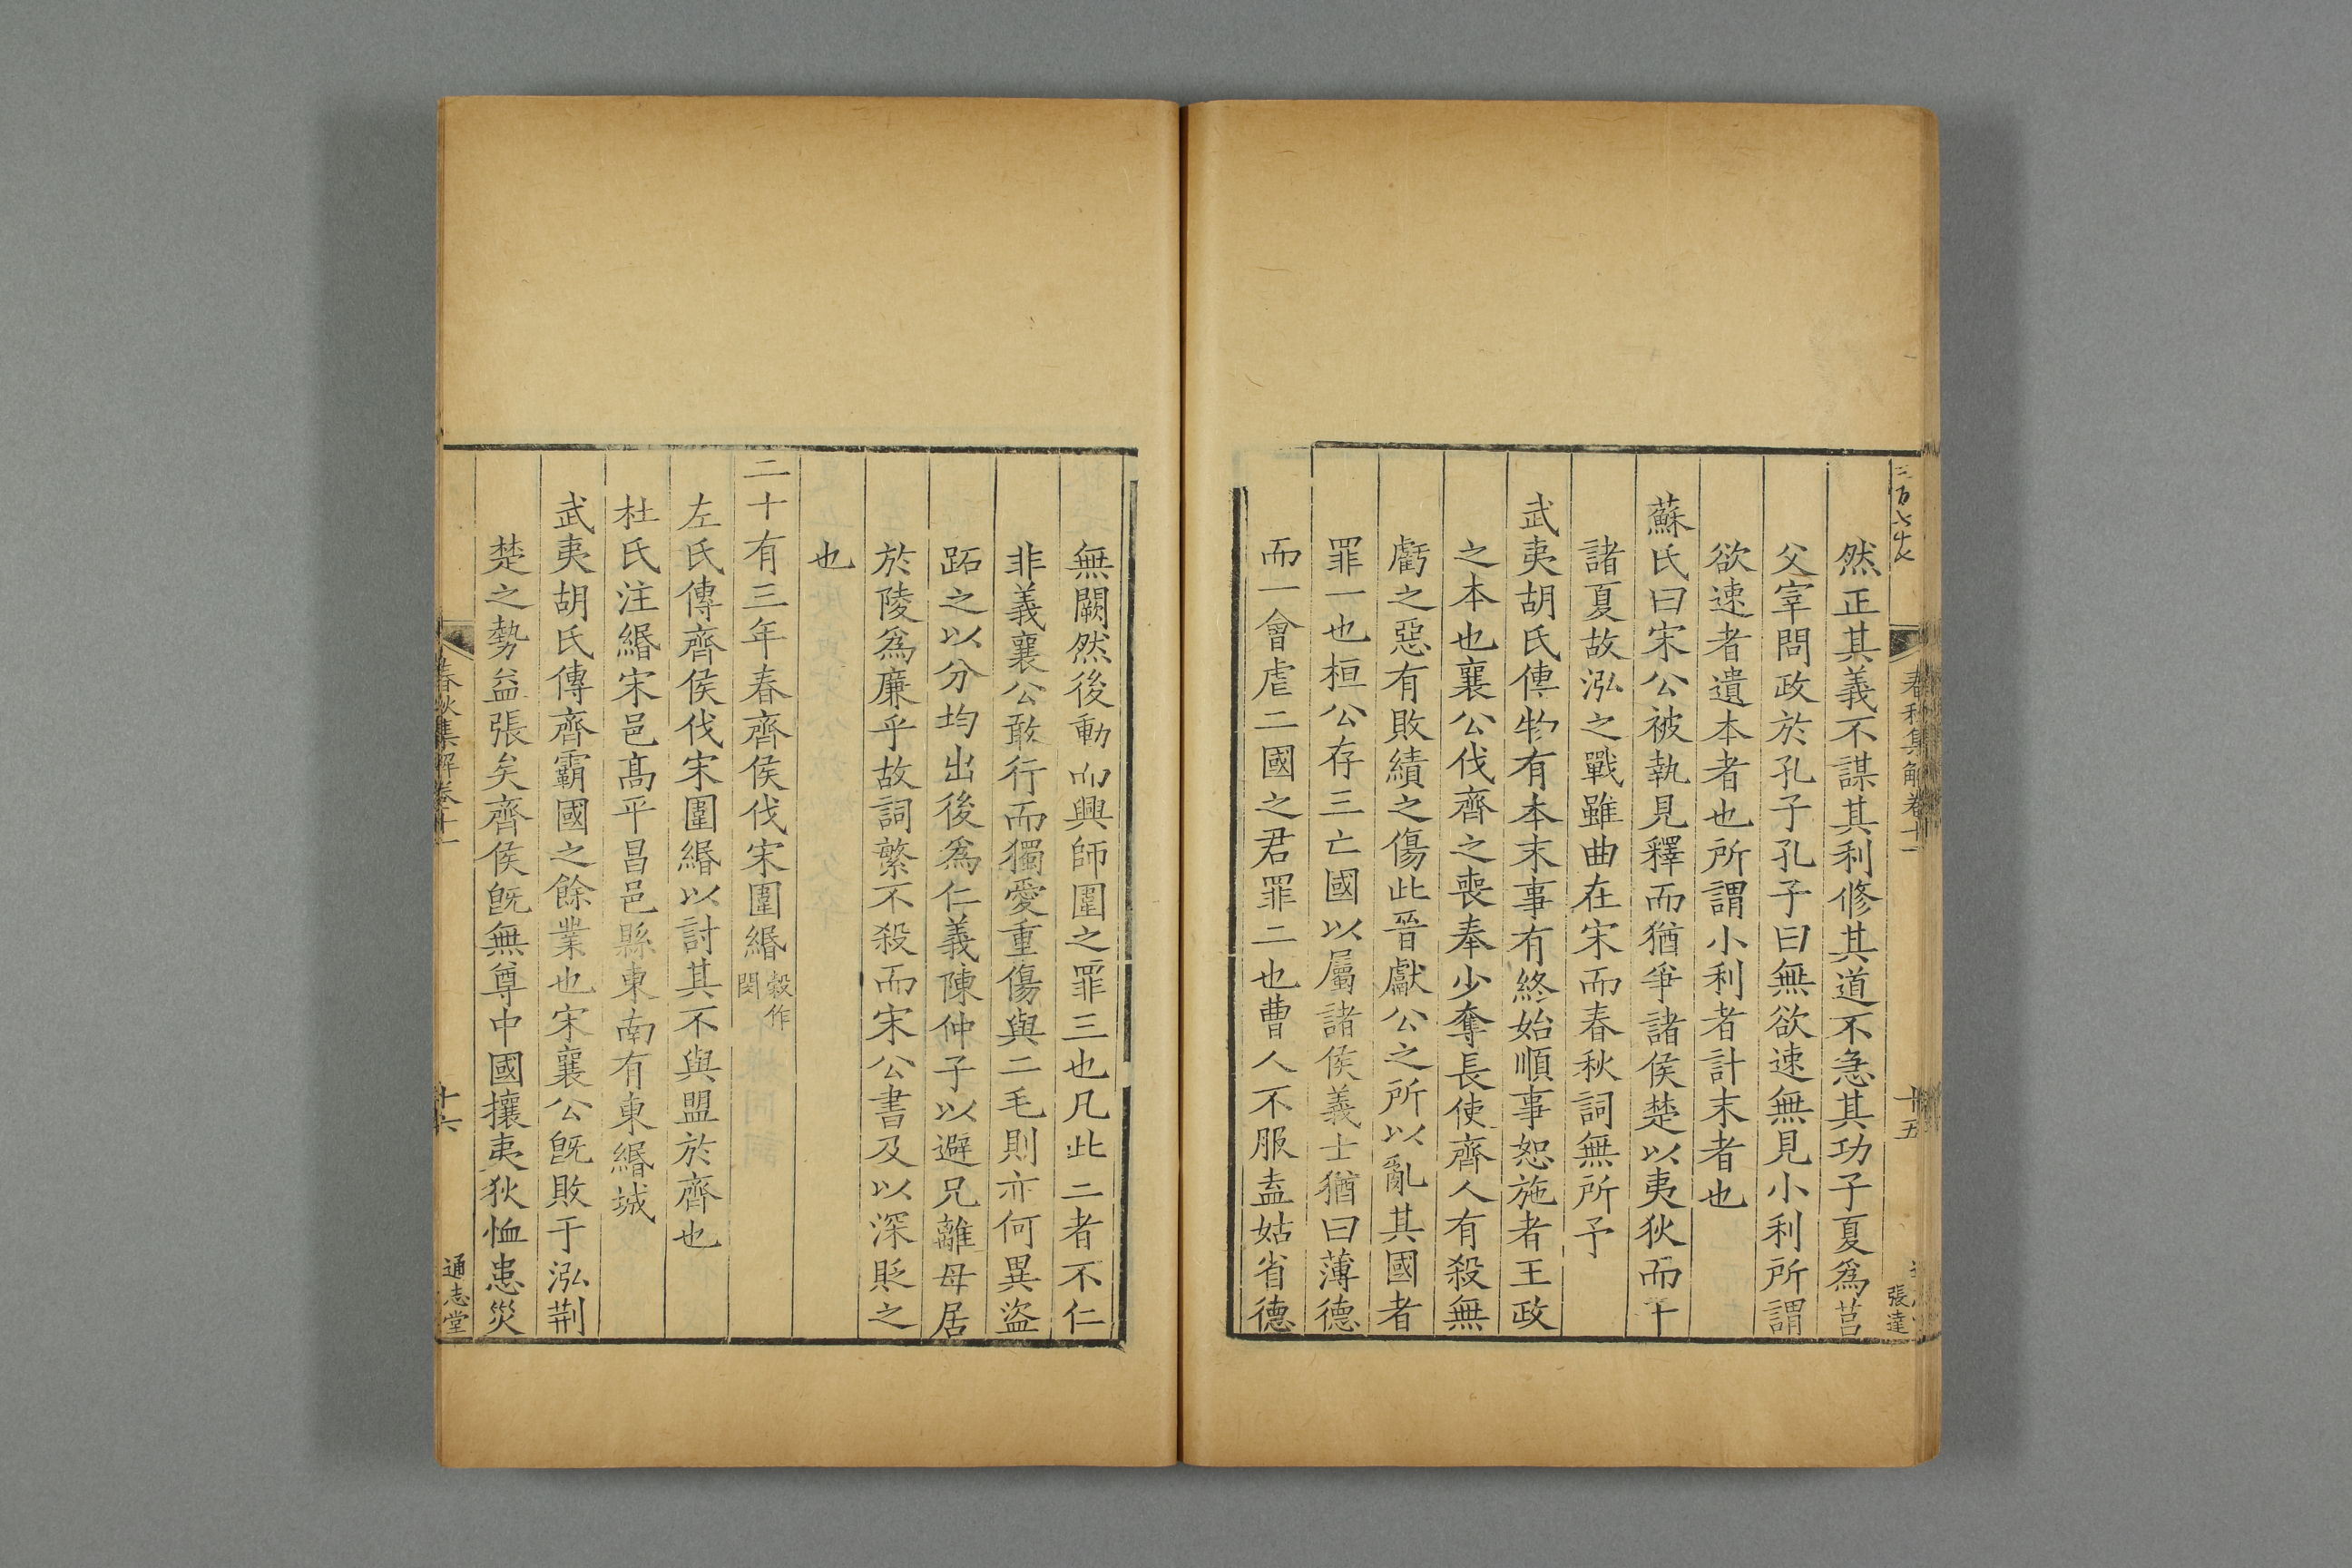 春秋集解卷十一
十五
張達
然正其義不謀其利修其道不急其功子夏爲莒
父宰問政於孔子孔子曰無欲速無見小利所謂
欲速者遺本者也所謂小利者計末者也
蘇氏曰宋公被執見釋而猶爭諸侯楚以夷狄而干
諸夏故泓之戰雖曲在宋而春秋詞無所予
武夷胡氏傳物有本末事有終始順事恕施者王政
之本也襄公伐齊之喪奉少奪長使齊人有殺無
虧之惡有敗績之傷此晉獻公之所以亂其國者
罪一也桓公存三亡國以屬諸侯義士猶曰薄德
而一會虐二國之君罪二也曹人不服盍姑省德
無闕然後動而興師圍之罪三也凡此二者不仁
非義襄公敢行而獨愛重傷與二毛則亦何異盜
跖之以分均出後爲仁義陳仲子以避兄離母居
於陵爲廉乎故詞繁不殺而宋公書及以深貶之
也
二十有三年春齊侯伐宋圍緡穀作閔
左氏傳齊侯伐宋圍緡以討其不與盟於齊也
杜氏注緡宋邑高平昌邑縣東南有東緡城
武夷胡氏傳齊霸國之餘業也宋襄公旣敗于泓荆
楚之勢益張矣齊侯旣無尊中國攘夷狄恤患災
春秋集解卷十一
十六
通志堂